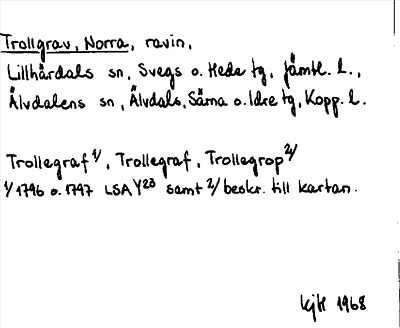 Trollgrav, Norra, ravin,
Lillhärdals sn, Svegs o. Hede tg, Jämtl. l.,
Älvdalens sn, Älvdals, Särna o. Idre tg, Kopp. l.
Trollegraf 1/, Trollegraf, Trollegrop 2/
1/ 1796 o. 1797 LSA Y23 samt 2/ beskr. till kartan.
KjH 1968